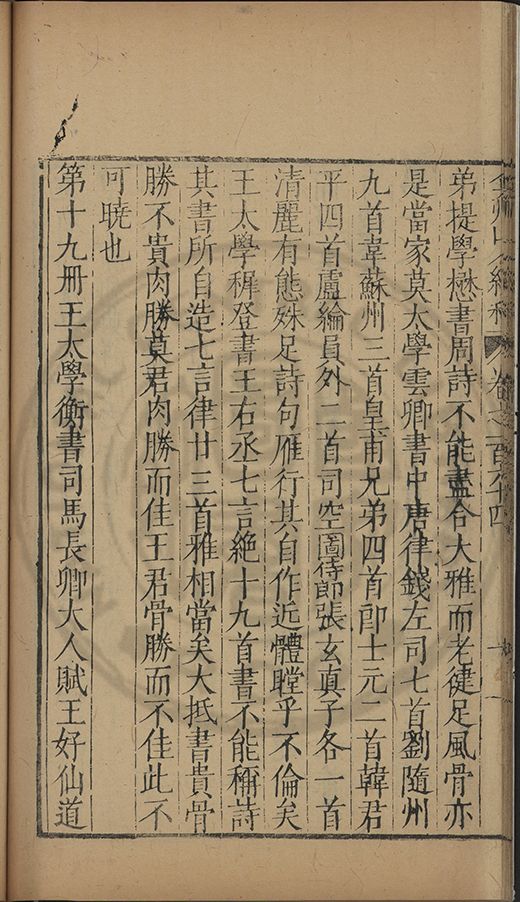 弇州山人續稿 卷之一百六十四
弟提學懋書周詩不能盡合大雅而老健足風骨亦
是當家莫太學雲卿書中唐律錢左司七首劉隨州
九首韋蘇州三首皇甫兄弟四首郎士元二首韓君
平四首盧綸員外二首司空圖侍郎張玄真子各一首
清麗有態殊足詩句雁行其自作近體瞠乎不倫矣
王太學穉登書王右丞七言絶十九首書不能稱詩
其書所自造七言律廿三首雅相當矣大抵書貴骨
勝不貴肉勝莫君肉勝而佳王君骨勝而不佳此不
可曉也
第十九冊王太學衡書司馬長卿大人賦王好仙道